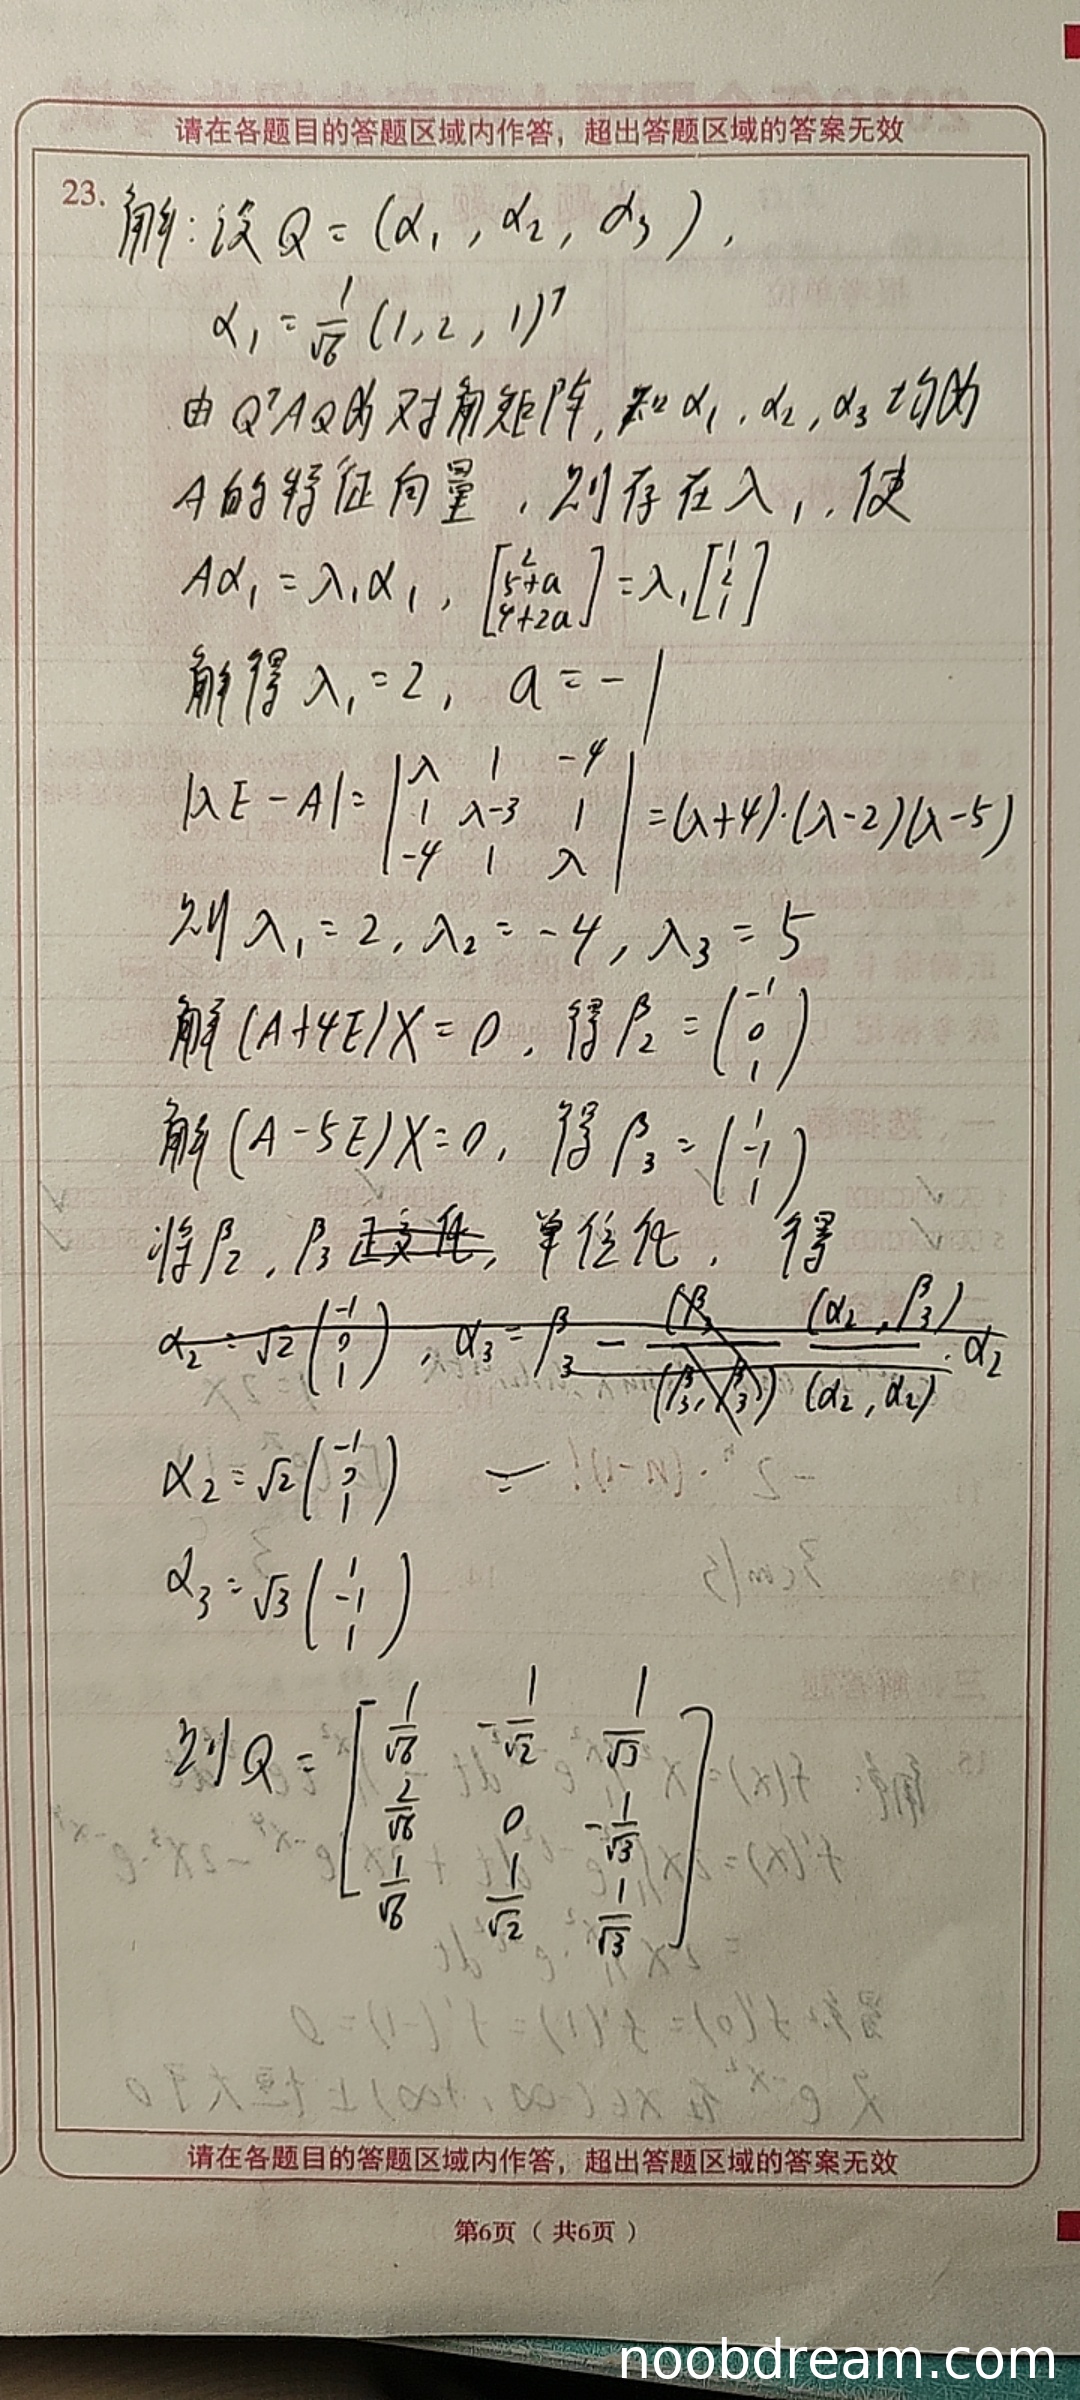 请在各题目的答题区域内作答，超出答题区域的答案无效
23.
解：设 Q = (α₁, α₂, α₃),
α₁ = 1/√6 (1, 2, 1)ᵀ
由 QᵀAQ为对角矩阵, 知 α₁, α₂, α₃ 均为
A的特征向量, 则存在 λ₁, 使
Aα₁ = λ₁α₁, [2; 5+a; 4+2a] = λ₁[1; 2; 1]
解得 λ₁ = 2, a = -1
|λE - A| = |λ 1 -4; 1 λ-3 1; -4 1 λ| = (λ+4)·(λ-2)(λ-5)
则 λ₁ = 2, λ₂ = -4, λ₃ = 5
解 (A+4E)X = 0, 得 β₂ = (-1; 0; 1)
解 (A-5E)X = 0, 得 β₃ = (1; -1; 1)
将 β₂, β₃ 正交化, 单位化, 得
α₂ = √2 (-1; 0; 1), α₃ = β₃ - (α₂, β₃)/(α₂, α₂) · α₂
α₂ = √2 (-1; 0; 1)
α₃ = √3 (1; -1; 1)
则 Q = [1/√6 -1/√2 1/√3; 2/√6 0 -1/√3; 1/√6 1/√2 1/√3]
请在各题目的答题区域内作答，超出答题区域的答案无效
第6页（共6页）
noobdream.com